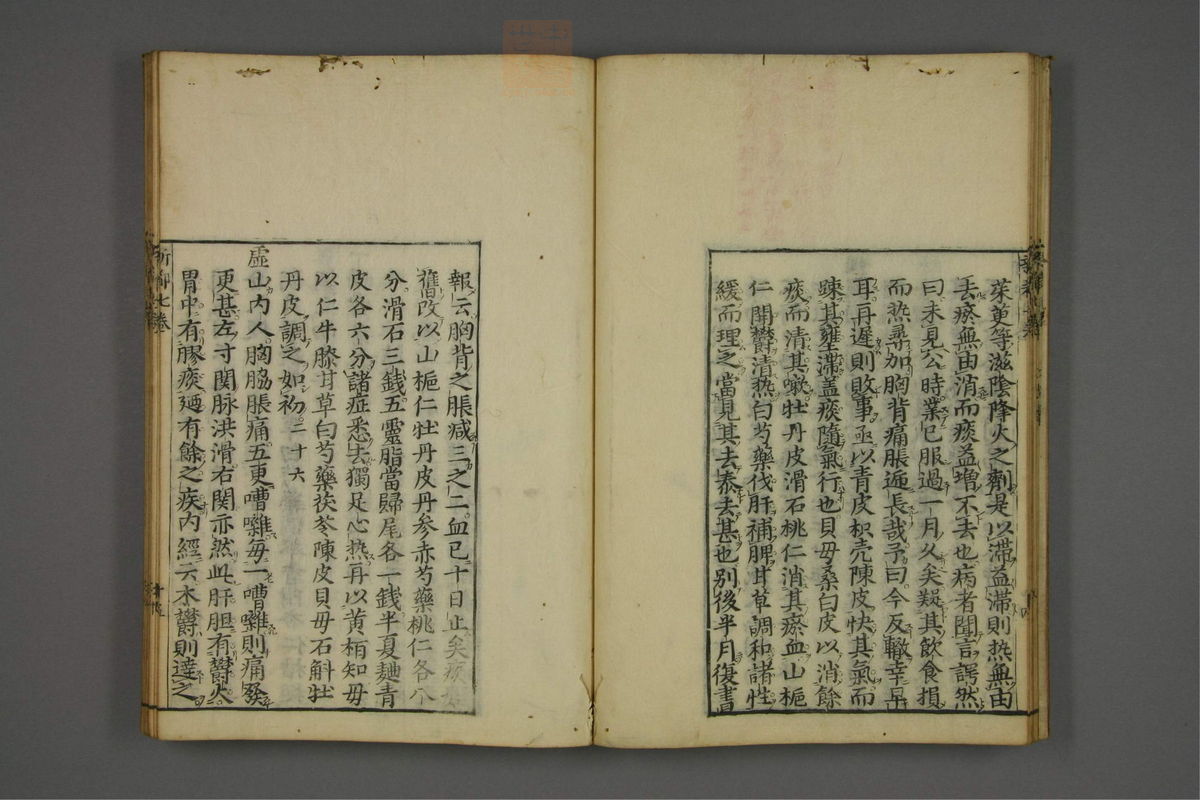 茱萸等滋陰降火之劑是以滞益滞則热無由
去瘀無由消而痰益增不去也病者聞言諤然
曰未見公時業已服過一月久矣疑其飲食損
而热尋加胸背痛脹迺長哉予曰今反轍幸早
耳再遲則敗事亟以青皮枳壳陳皮快其氣而
踈其壅滞盖痰隨氣行也貝毋桑白皮以消餘
痰而清其嗽牡丹皮滑石桃仁消其瘀血山梔
仁開欝清热白芍藥伐肝補脾甘草調和諸性
緩而理之當見其去泰去甚也别後半月復書
報云胸背之脹减三之二血已十日止矣痰
舊改以山梔仁牡丹皮丹参赤芍藥桃仁各八
分滑石三錢五靈脂當歸尾各一錢半夏麯青
皮各六分諸症悉去獨足心热再以黄栢知毋
以仁牛膝甘草白芍藥茯苓陳皮貝毋石斛牡
丹皮調之如初二十六
虚山内人胸脇脹痛五更嘈囃每一嘈囃則痛發
更甚左寸関脉洪滑右関亦然此肝胆有欝火
胃中有膠痰廼有餘之疾内經云木欝則達之